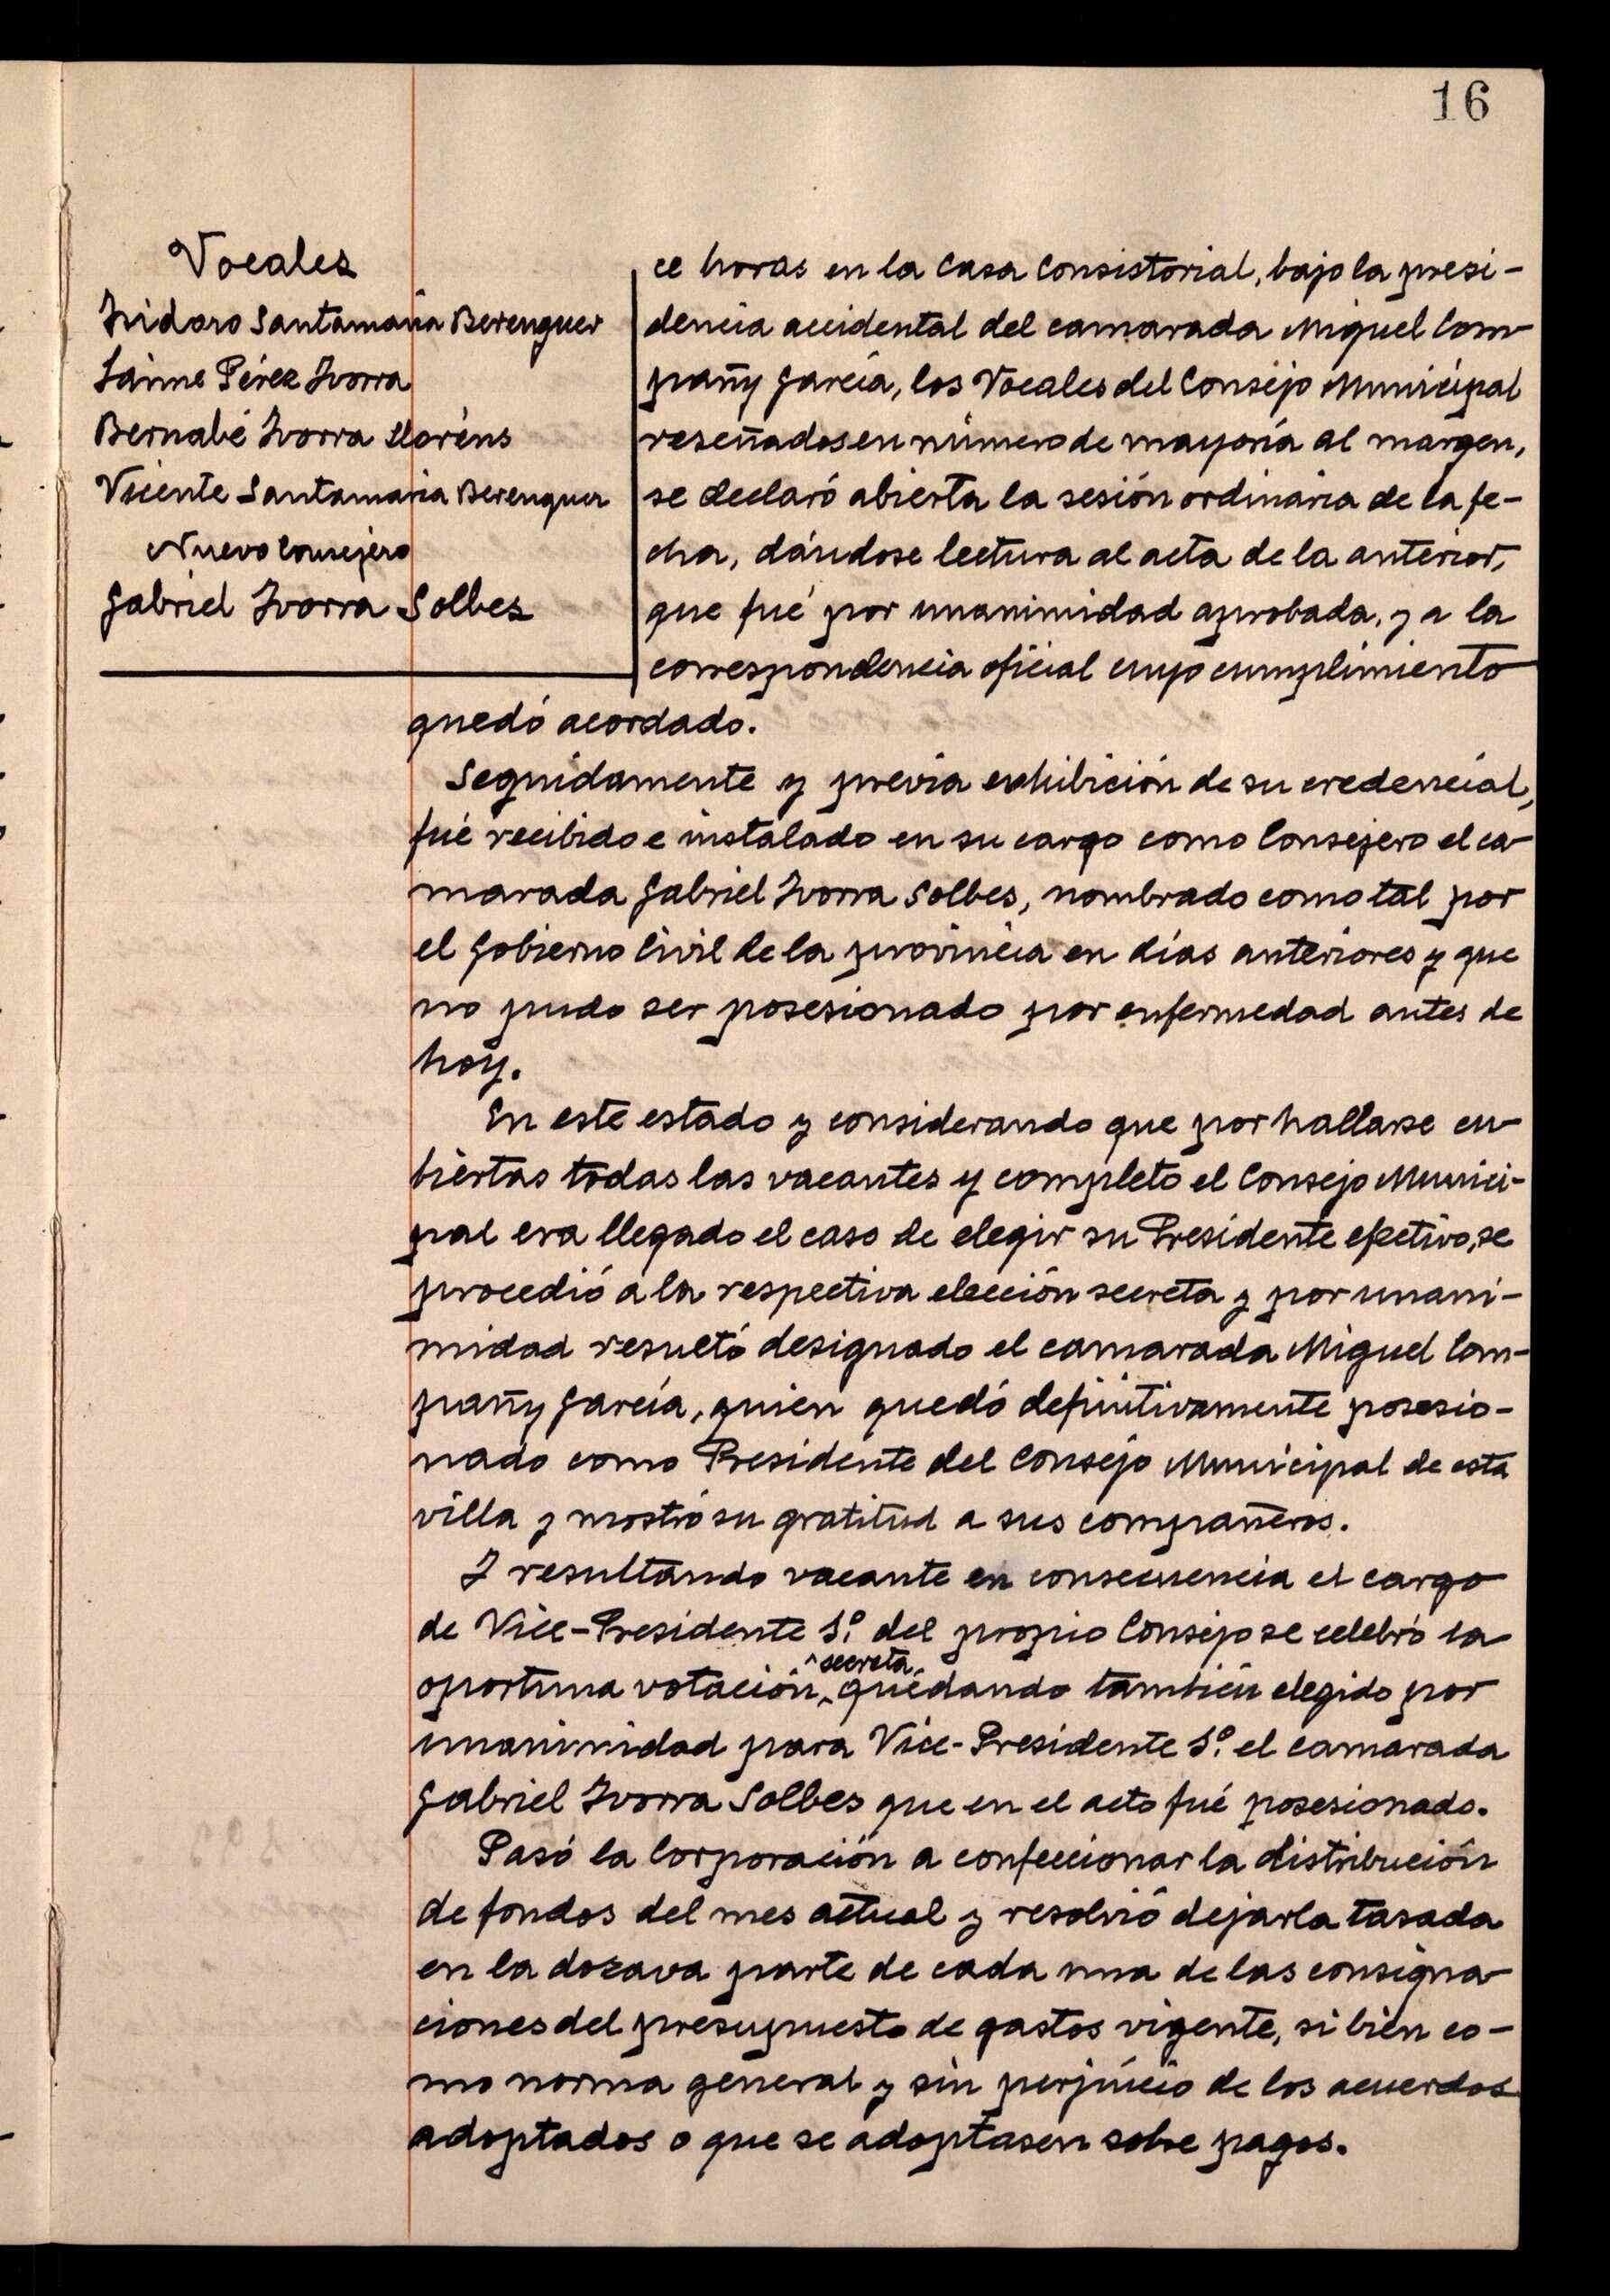 16
Vocales
Isidoro Santamaría Berenguer
Jaime Pérez Ivorra
Bernabé Ivorra Lloréns
Vicente Santamaría Berenguer
Nuevo Consejero
Gabriel Ivorra Solbes
ce horas en la Casa Consistorial, bajo la presi-
dencia accidental del camarada Miguel Com-
pañy García, los Vocales del Consejo Municipal
reseñados en número de mayoría al margen,
se declaró abierta la sesión ordinaria de la fe-
cha, dándose lectura al acta de la anterior,
que fué por unanimidad aprobada, y a la
correspondencia oficial cuyo cumplimiento
quedó acordado.
Seguidamente y previa exhibición de su credencial,
fué recibido e instalado en su cargo como Consejero el ca-
marada Gabriel Ivorra Solbes, nombrado como tal por
el Gobierno Civil de la provincia en días anteriores y que
no pudo ser posesionado por enfermedad antes de
hoy.
En este estado y considerando que por hallarse cu-
biertas todas las vacantes y completo el Consejo Munici-
pal era llegado el caso de elegir su Presidente efectivo, se
procedió a la respectiva elección secreta y por unani-
midad resultó designado el camarada Miguel Com-
pañy García, quien quedó definitivamente posesio-
nado como Presidente del Consejo Municipal de esta
villa y mostró su gratitud a sus compañeros.
Y resultando vacante en consecuencia el cargo
de Vice-Presidente 1º. del propio Consejo se celebró la
oportuna votación, secreta, quedando también elegido por
unanimidad para Vice-Presidente 1º. el camarada
Gabriel Ivorra Solbes que en el acto fué posesionado.
Pasó la Corporación a confeccionar la distribución
de fondos del mes actual y resolvió dejarla tasada
en la dozava parte de cada una de las consigna-
ciones del presupuesto de gastos vigente, si bien co-
mo norma general y sin perjuicio de los acuerdos
adoptados o que se adoptasen sobre pagos.